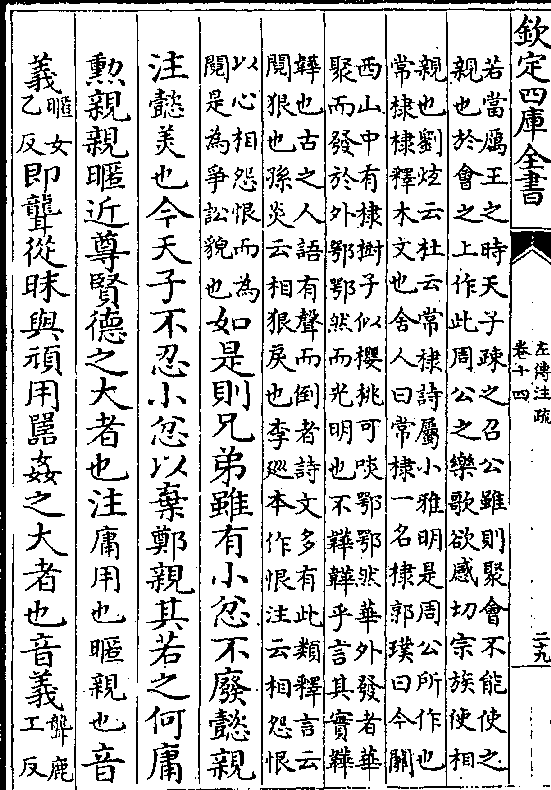 欽定四庫全書
左傳注疏
卷十四
二十九
若當厲王之時天子疎之召公雖則聚會不能使之
親也於會之上作此周公之樂歌欲感切宗族使相
親也劉炫云杜云常棣詩屬小雅明是周公所作也
常棣棣釋木文也舍人曰常棣一名棣郭璞曰今關
西山中有棣樹子似櫻桃可啖鄂鄂然華外發者華
聚而發於外鄂鄂然而光明也不韡韡乎言其實韡
韡也古之人語有聲而倒者詩文多有此類釋言云
鬩狠也孫炎云相狠戾也李廵本作恨注云相怨恨
以心相怨恨而為
鬩是為爭訟貌也
如是則兄弟雖有小忿不廢懿親
注懿美也今天子不忍小忿以棄鄭親其若之何庸
勲親親暱近尊賢德之大者也注庸用也暱親也音
義
暱女
乙反
即聾從昧與頑用嚚姦之大者也音義
聾鹿
工反